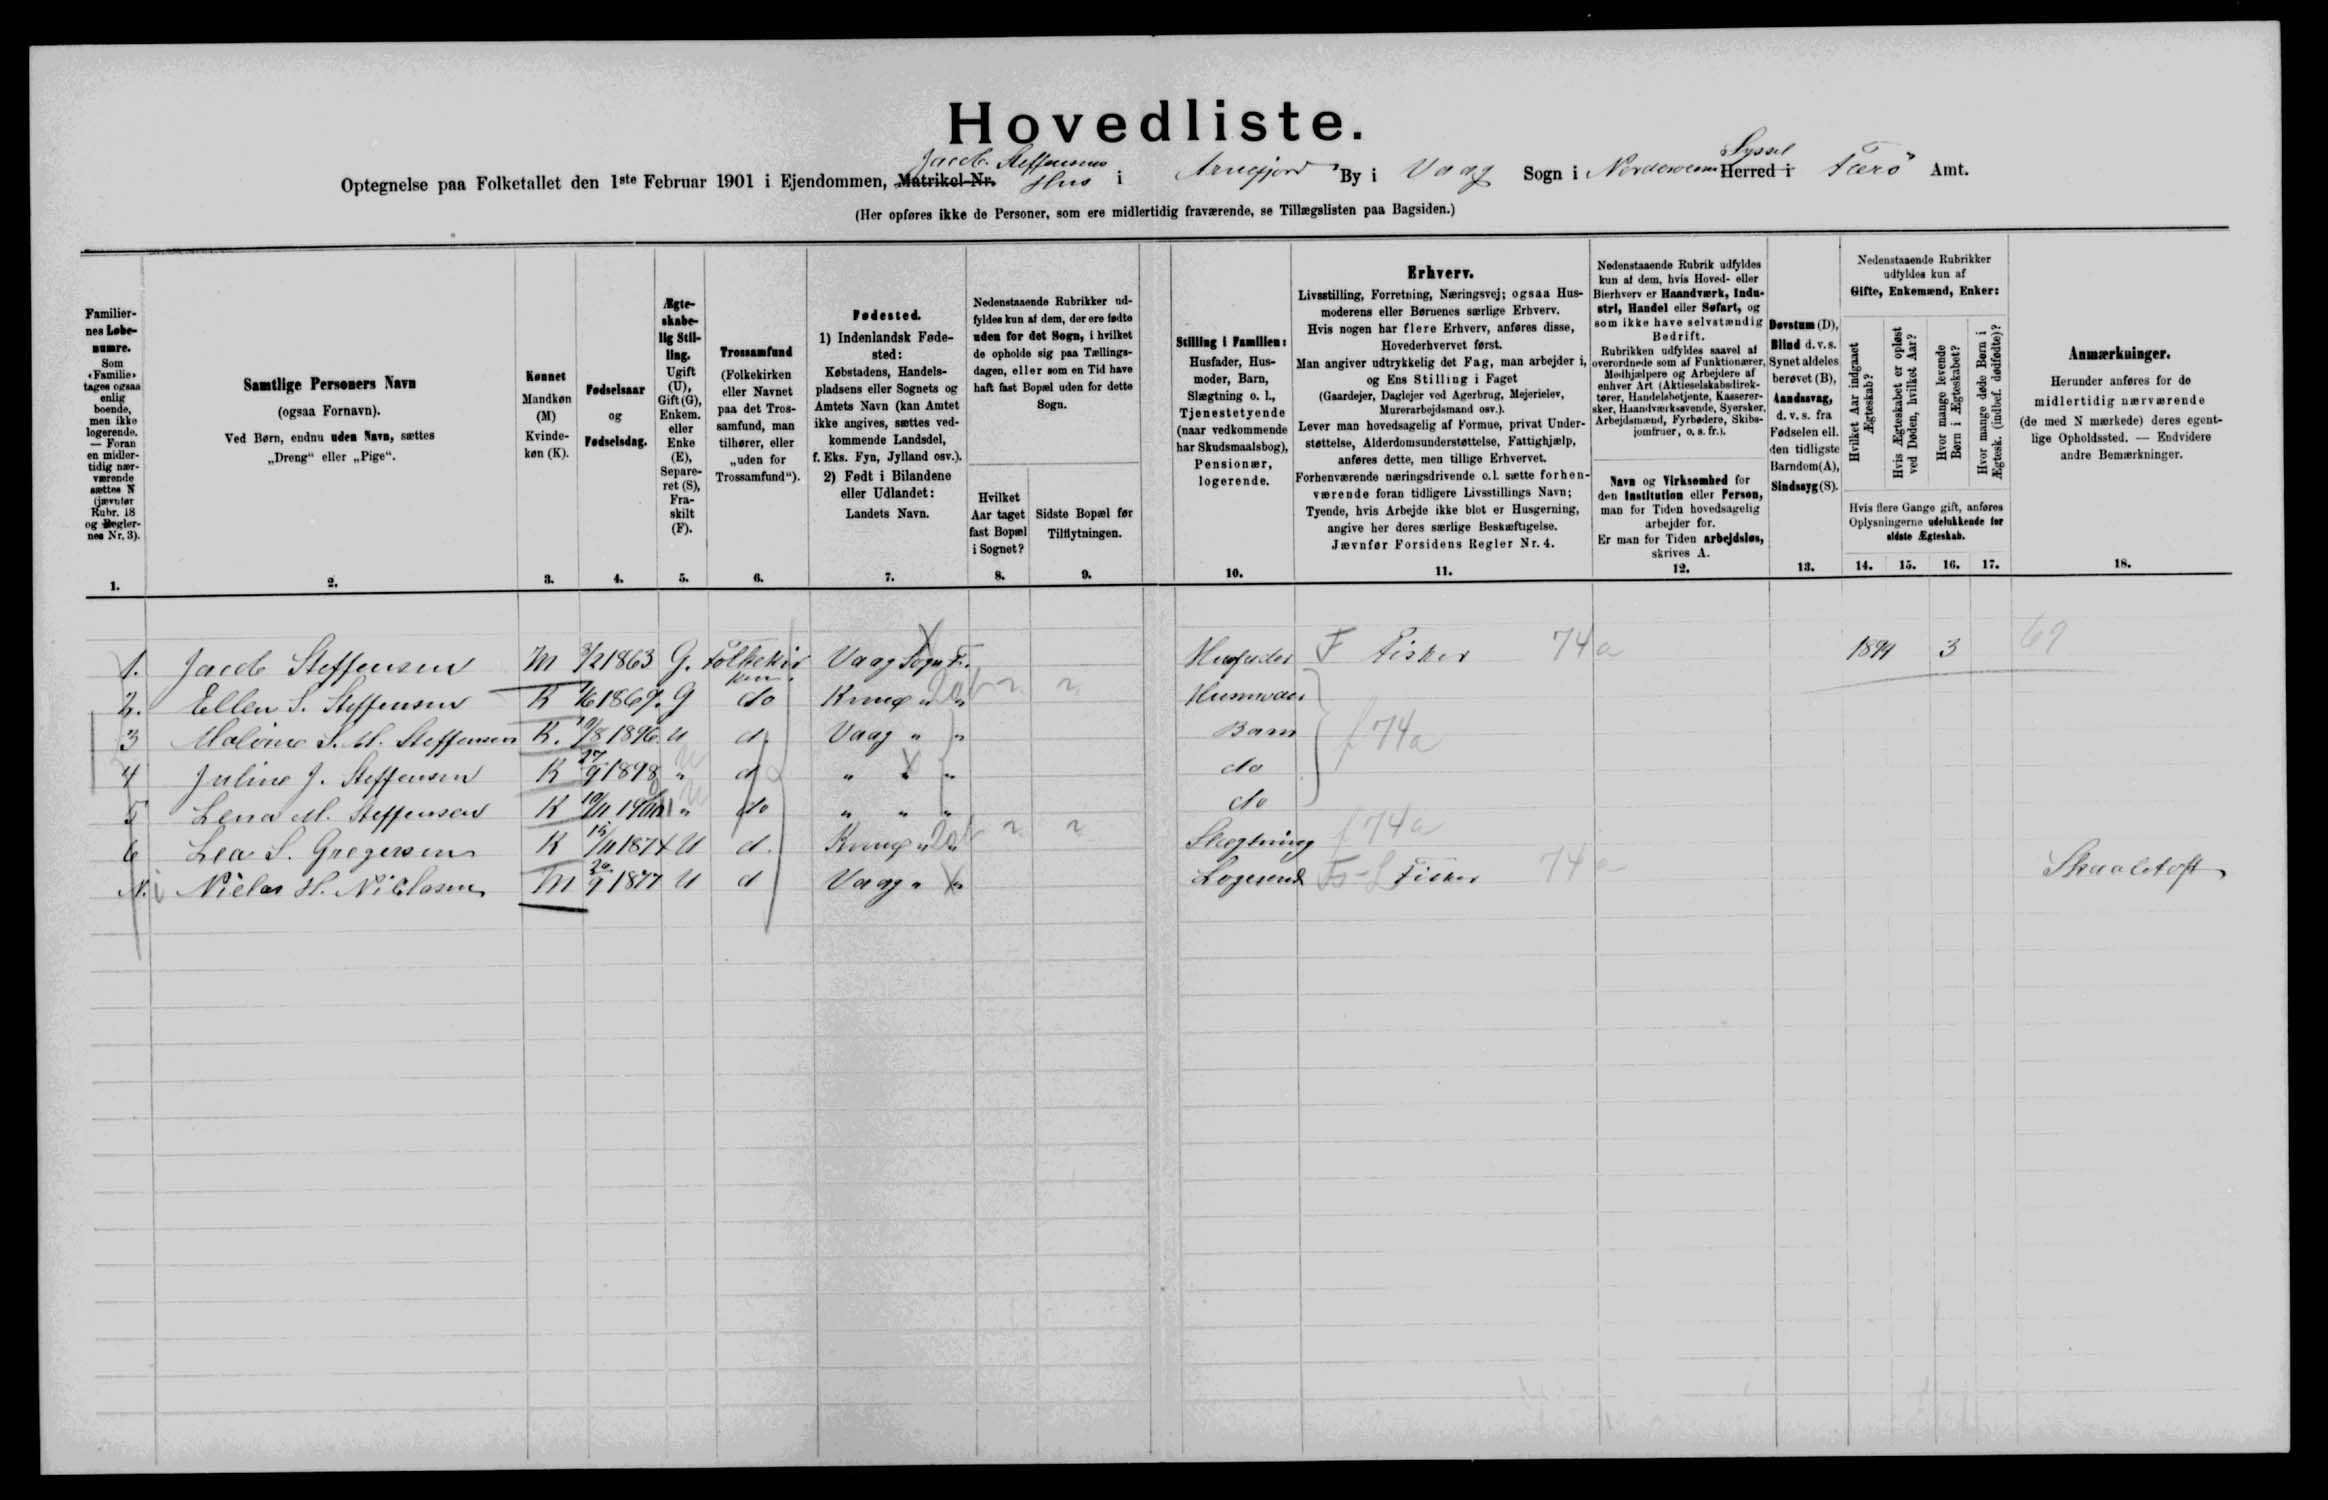 Hovedliste.
Optegnelse paa Folketallet den 1ste Februar 1901 i Ejendommen, Matrikel-Nr. Jacob Steffensens Hus i Arnefjord By i Vaag Sogn i Norderøernes Herred i Syssel Færø Amt.
(Her opføres ikke de Personer, som ere midlertidig fraværende, se Tillægslisten paa Bagsiden.)
Familiernes Løbenumre.
Som «Familie» tages ogsaa enlig boende, men ikke logerende. — Foran en midlertidig nærværende sættes N (jævnfør Rubr. 18 og Reglernes Nr. 3).
1.
Samtlige Personers Navn
(ogsaa Fornavn).
Ved Børn, endnu uden Navn, sættes
„Dreng“ eller „Pige“.
2.
Kønnet
Mandkøn
(M)
Kvinde-
køn (K).
3.
Fødselsaar
og
Fødselsdag.
4.
Ægte-
skabe-
lig Stil-
ling.
Ugift
(U),
Gift (G),
Enkem.
eller
Enke
(E),
Separe-
ret (S),
Fra-
skilt
(F).
5.
Trossamfund
(Folkekirken
eller Navnet
paa det Tros-
samfund, man
tilhører, eller
„uden for
Trossamfund“).
6.
Fødested.
1) Indenlandsk Føde-
sted:
Købstadens, Handels-
pladsens eller Sognets og
Amtets Navn (kan Amtet
ikke angives, sættes ved-
kommende Landsdel,
f. Eks. Fyn, Jylland osv.).
2) Født i Bilandene
eller Udlandet:
Landets Navn.
7.
Nedenstaaende Rubrikker ud-
fyldes kun af dem, der ere fødte
uden for det Sogn, i hvilket
de opholde sig paa Tællings-
dagen, eller som en Tid have
haft fast Bopæl uden for dette
Sogn.
Hvilket
Aar taget
fast Bopæl
i Sognet?
8.
Sidste Bopæl før
Tilflytningen.
9.
Stilling i Familien:
Husfader, Hus-
moder, Barn,
Slægtning o. l.,
Tjenestetyende
(naar vedkommende
har Skudsmaalsbog),
Pensionær,
logerende.
10.
Erhverv.
Livsstilling, Forretning, Næringsvej; ogsaa Hus-
moderens eller Børnenes særlige Erhverv.
Hvis nogen har flere Erhverv, anføres disse,
Hovederhvervet først.
Man angiver udtrykkelig det Fag, man arbejder i,
og Ens Stilling i Faget
(Gaardejer, Daglejer ved Agerbrug, Mejerielev,
Murerarbejdsmand osv.).
Lever man hovedsagelig af Formue, privat Under-
støttelse, Alderdomsunderstøttelse, Fattighjælp,
anføres dette, men tillige Erhvervet.
Forhenværende næringsdrivende o.l. sætte forhen-
værende foran tidligere Livsstillings Navn;
Tyende, hvis Arbejde ikke blot er Husgerning,
angive her deres særlige Beskæftigelse.
Jævnfør Forsidens Regler Nr. 4.
11.
Nedenstaaende Rubrik udfyldes
kun af dem, hvis Hoved- eller
Bierhverv er Haandværk, Indu-
stri, Handel eller Søfart, og
som ikke have selvstændig
Bedrift.
Rubrikken udfyldes saavel af
overordnede som af Funktionærer,
Medhjælpere og Arbejdere af
enhver Art (Aktieselskabsdirek-
tører, Handelsbetjente, Kasserer-
sker, Haandværkssvende, Syersker,
Arbejdsmænd, Fyrbødere, Skibs-
jomfruer, o. s. fr.).
Navn og Virksomhed for
den Institution eller Person,
man for Tiden hovedsagelig
arbejder for.
Er man for Tiden arbejdsløs,
skrives A.
12.
Døvstum (D),
Blind d. v. s.
Synet aldeles
berøvet (B),
Aandssvag,
d. v. s. fra
Fødselen ell.
den tidligste
Barndom (A),
Sindssyg (S).
13.
Nedenstaaende Rubrikker
udfyldes kun af
Gifte, Enkemænd, Enker:
Hvilket Aar indgaaet Ægteskab?
Hvis Ægteskabet er opløst ved Døden, hvilket Aar?
Hvor mange levende Børn i Ægteskabet?
Hvor mange døde Børn i Ægtesk. (indbef. dødfødte)?
Hvis flere Gange gift, anføres
Oplysningerne udelukkende for
sidste Ægteskab.
14. 15. 16. 17.
Anmærkninger.
Herunder anføres for de
midlertidig nærværende
(de med N mærkede) deres egent-
lige Opholdssted. — Endvidere
andre Bemærkninger.
18.
1. Jacob Steffensen M 3/2 1863 G. Folkekirken Vaag Sogn F. Husfader F Fisker 74a 1894 3 69
2. Ellen S. Steffensen K 1/6 1869. G do Kvnnæ " " Husmoder
3 Malvine S. M. Steffensen K. 10/8 1896 U d. Vaag " " Barn f 74a
4 Juline J. Steffensen K 27/9 1898 " d " " " do
5 Lena M. Steffensen K 10/11 1900 " do " " " do
6 Lea S. Gregersen K 15/11 1874 U d. " " Slægtning f 74a
N. Niclas H. Niclasen M 20/9 1877 U d Vaag " " Logerende Fisker 74a Skaaletoft